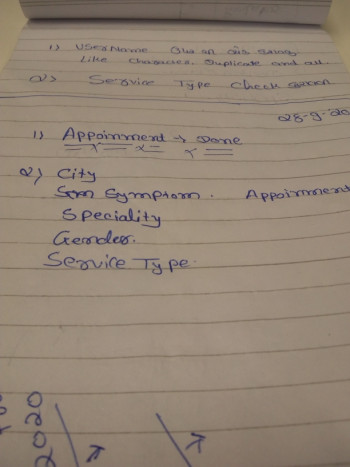 1) UserName
like character, Duplicate and all.
2) Service Type Check screen
28-9-20
1) Appoinment → Done
2) City
Symptom. Appoinment
Speciality
Gender.
Service Type.
2020